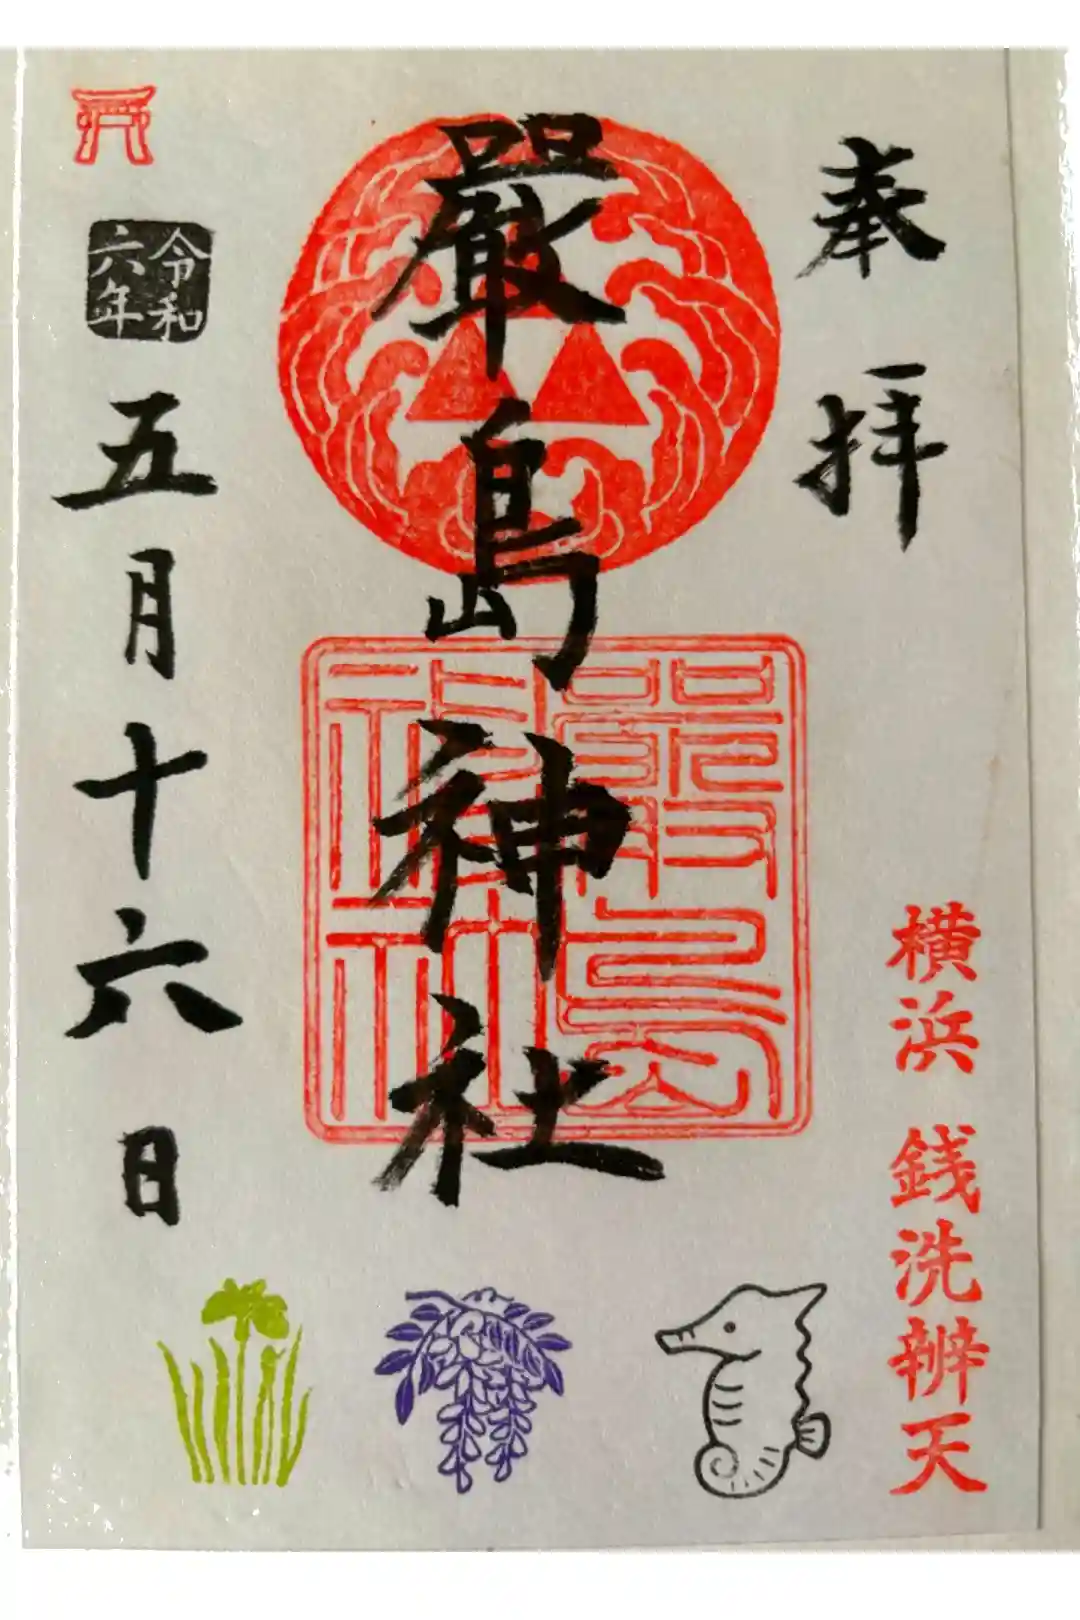 奉拝
横浜 銭洗辨天
嚴島神社
嚴島
神社
令和
六年
五月十六日